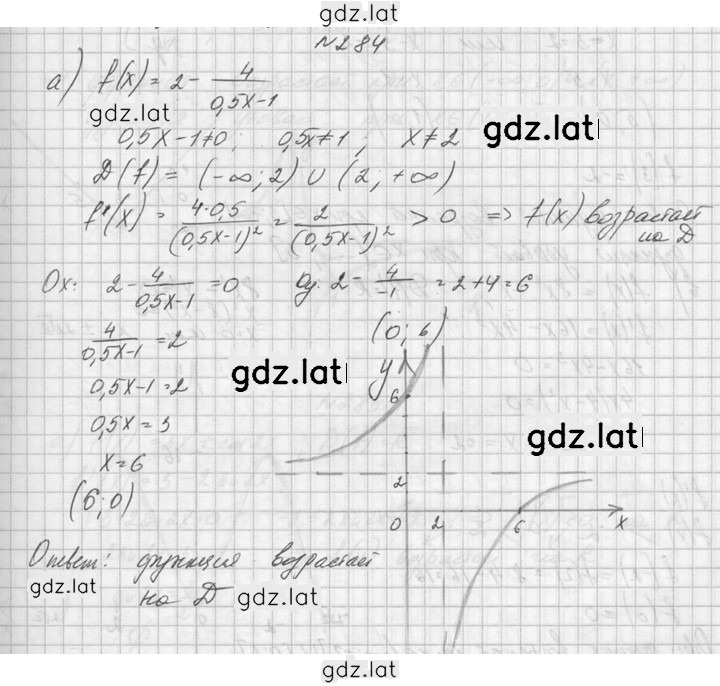 gdz.lat
№284
а) f(x) = 2 - 4/(0,5x-1)
gdz.lat
gdz.lat
0,5x-1≠0; 0,5x≠1; x≠2
D(f) = (-∞; 2) ∪ (2; +∞)
f'(x) = 4·0,5/(0,5x-1)² = 2/(0,5x-1)² > 0 ⇒ f(x) возрастает
на D
Ox: 2 - 4/(0,5x-1) = 0 Oy: 2 - 4/-1 = 2+4 = 6
4/(0,5x-1) = 2 (0; 6)
gdz.lat
gdz.lat
0,5x-1=2
0,5x=3
x=6
(6;0)
y
6
2
gdz.lat
0 2 6 x
Ответ: функция возрастает
на D
gdz.lat
gdz.lat
gdz.lat